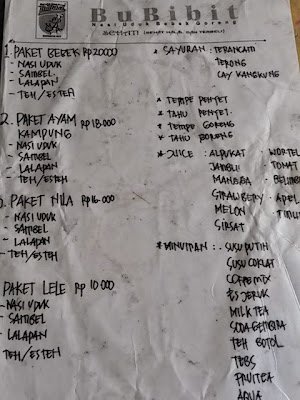 BuBibit
Nasi Uduk Bebek Goreng
1. PAKET BEBEK Rp 20000
- NASI UDUK
- SAMBEL
- LALAPAN
- TEH/ESTEH
2. PAKET AYAM KAMPUNG Rp 18.000
- NASI UDUK
- SAMBEL
- LALAPAN
- TEH/ESTEH
PAKET NILA Rp 16.000
- NASI UDUK
- SAMBEL
- LALAPAN
- TEH/ESTEH
PAKET LELE Rp 10 000
- NASI UDUK
- SAMBEL
- LALAPAN
TEH/ESTEH
* SAYURAN : TERANCAM
TERONG
CAY KANGKUNG
* TEMPE PENYET
* TAHU PENYET
* TEMPE GORENG
* TAHU GORENG
* JUICE : ALPUKAT
JAMBU
MANGGA
STRAWBERY
MELON
SIRSAT
- WORTEL
TOMAT
* MINUMAN : SUSU PUTIH
SUSU COKLAT
COFFEMIX
ES JERUK
MILK TEA
SODA GEMBIRA
TEH BOTOL
TEBS
FRUITEA
AQUA